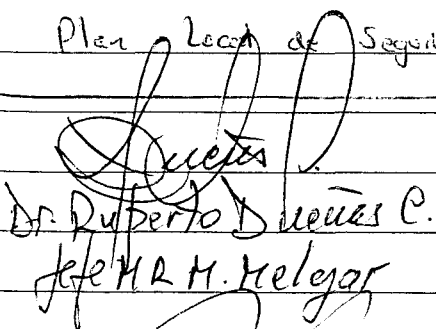 Plan Local de
Dueñas
Dr. Ruperto Dueñas C.
Jefe MR M. Melgar